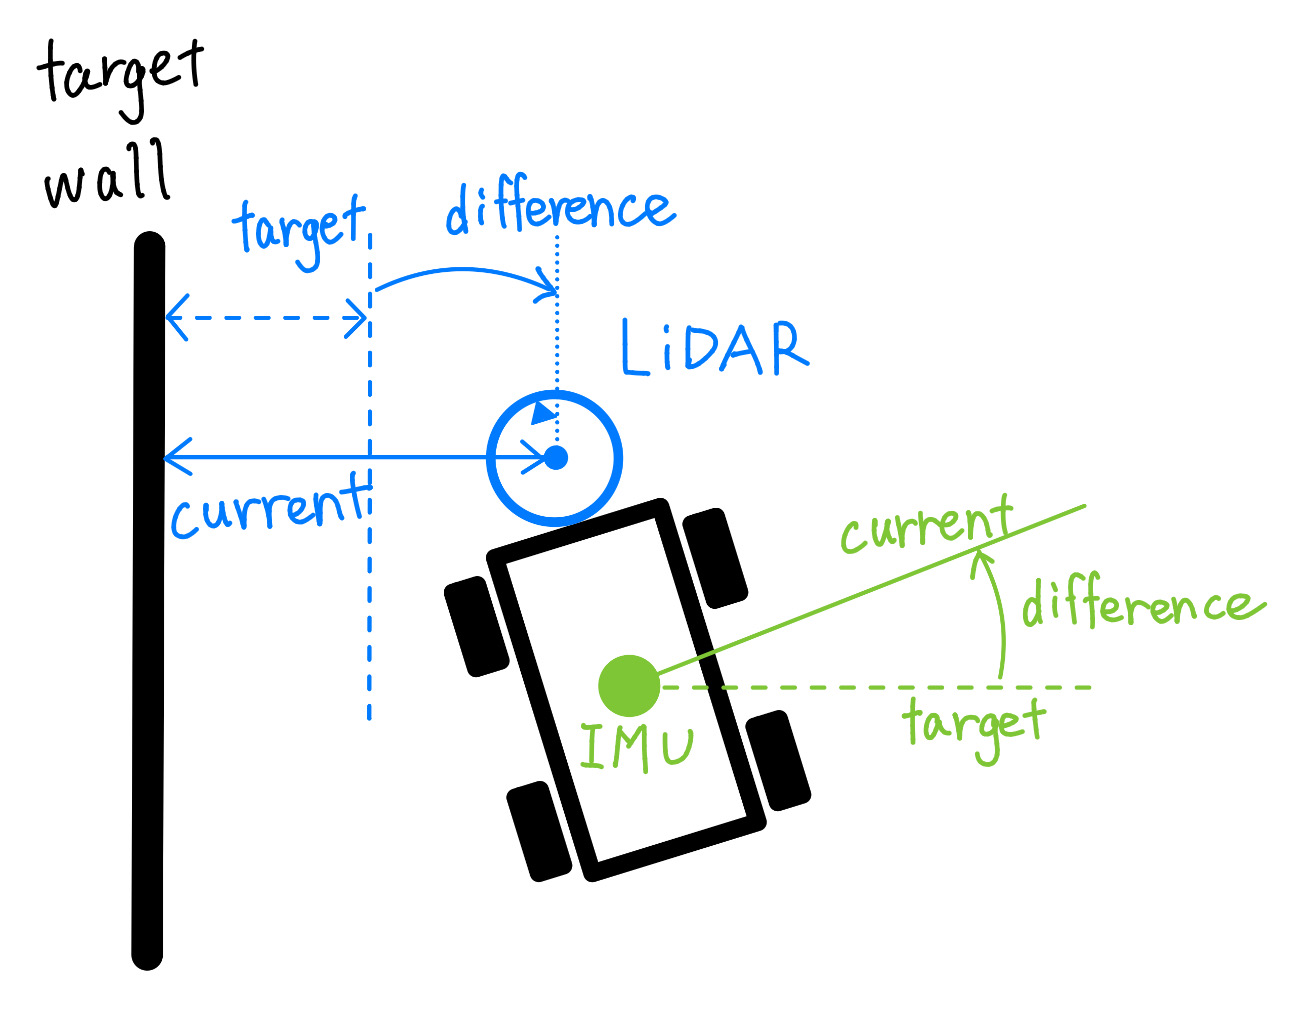 target
wall
target
difference
LiDAR
current
current
difference
target
IMU